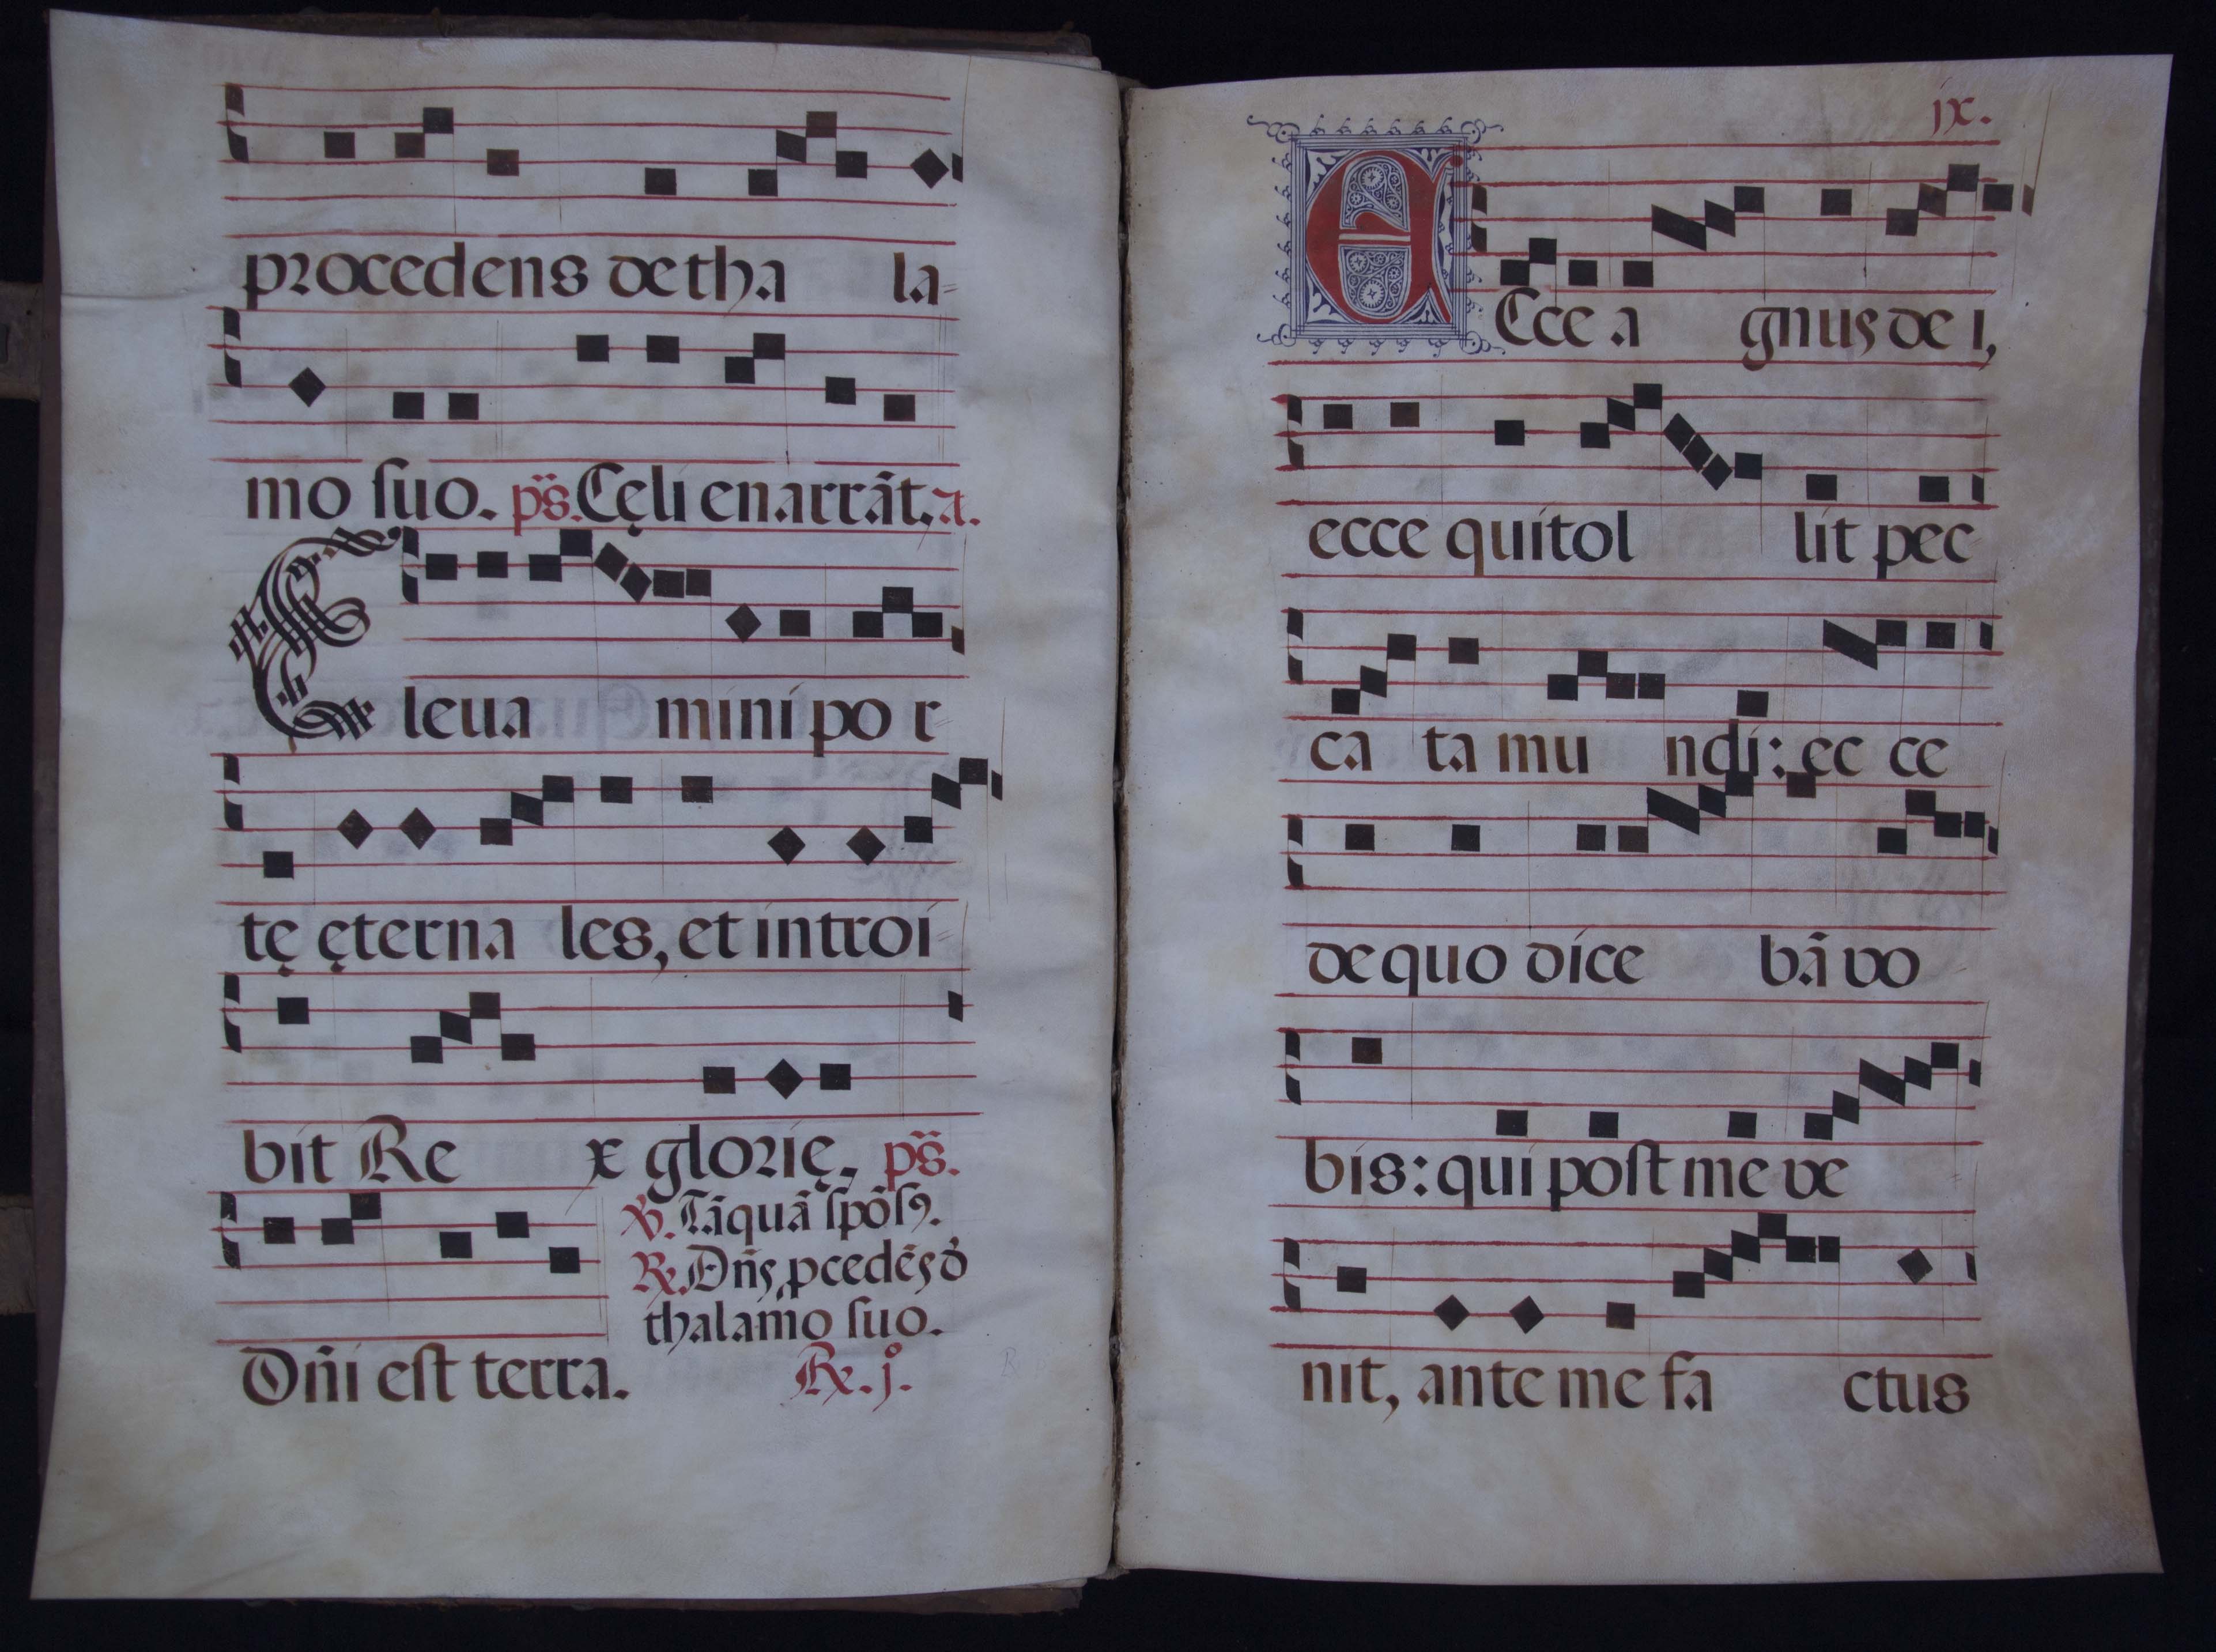 procedens de tha la=
mo ſuo. p̈s. Cęli enarrãt. a.
Eleua mini po r=
tę ęterna les, et introi=
bit Re x glorię. p̈s.
℣. Tãquã ſpõſꝯ.
℟. Dñs ꝓcedẽs đ
thalamo ſuo.
Dñi eſt terra. ℟. jº.
jx.
ECce a gnus de i,
ecce qui tol lit pec=
ca ta mu ndi: ec ce
de quo dice bã vo=
bis: qui poſt me ve=
nit, ante me fa ctus